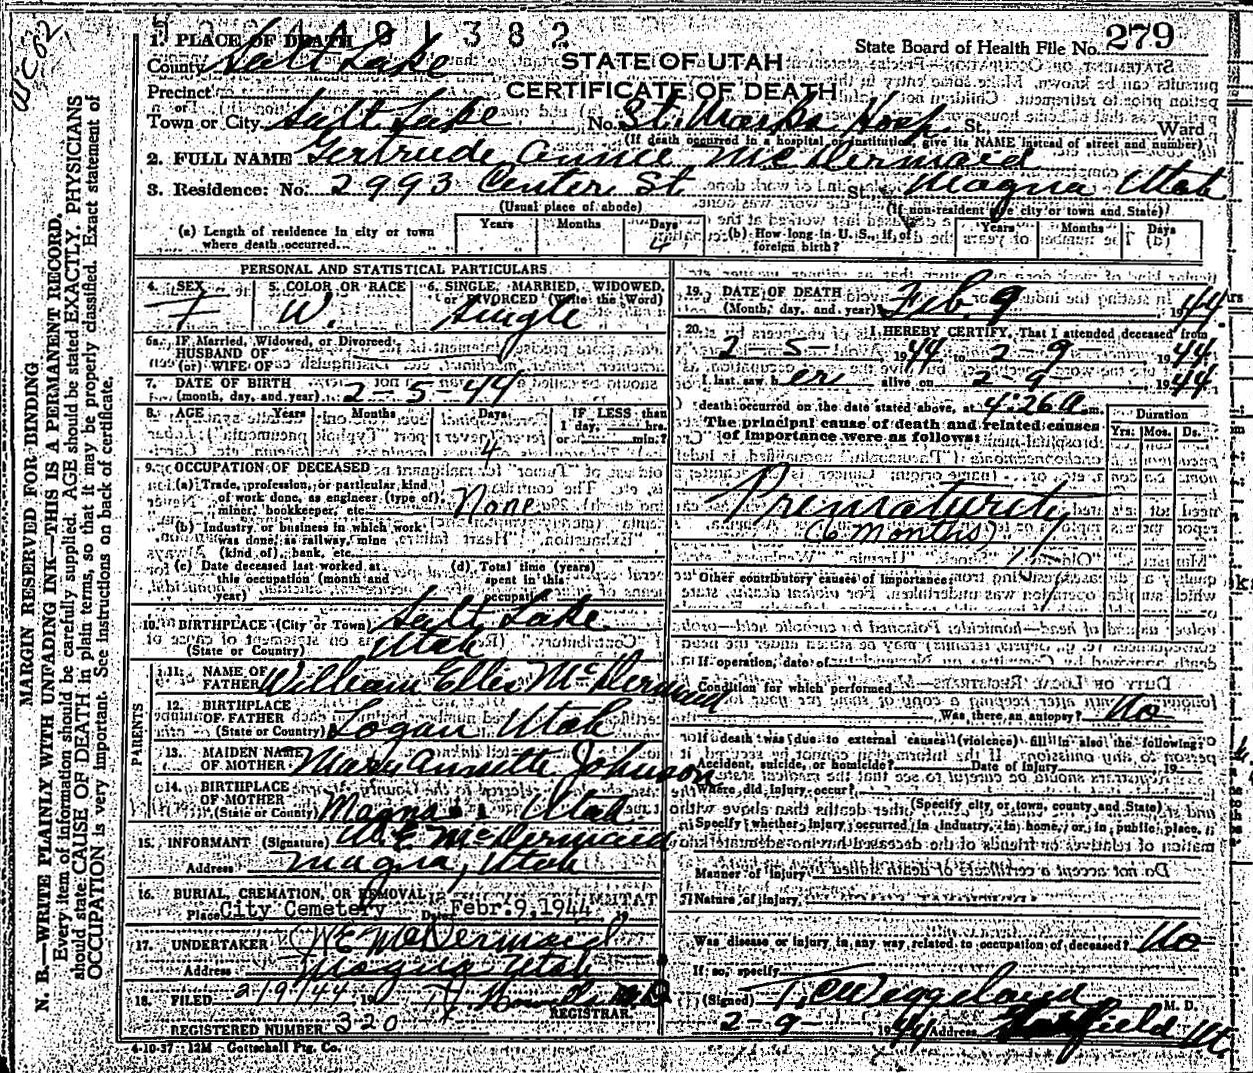 WC62
1. PLACE OF DEATH
County Salt Lake
Precinct
Town or City Salt Lake No. St. Marks Hosp. St. Ward
(If death occurred in a hospital or institution, give its NAME instead of street and number)
STATE OF UTAH
CERTIFICATE OF DEATH
State Board of Health File No. 279
2. FULL NAME Gertrude Annie McDermaid
3. Residence: No. 2993 Center St St. Magna Utah
(Usual place of abode) (If non-resident give city or town and State)
(a) Length of residence in city or town where death occurred Years Months Days
(b) How long in U. S., if of foreign birth? Years Months Days
PERSONAL AND STATISTICAL PARTICULARS
4. SEX F
5. COLOR OR RACE W.
6. SINGLE, MARRIED, WIDOWED, or DIVORCED (Write the Word) Single
6a. IF Married, Widowed, or Divorced
HUSBAND OF
(or) WIFE OF
7. DATE OF BIRTH
(month, day, and year) 2-5-44
8. AGE Years Months Days 4
IF LESS than 1 day, hrs. or min.?
9. OCCUPATION OF DECEASED
(a) Trade, profession, or particular kind of work done, as engineer (type of), miner, bookkeeper, etc. None
(b) Industry or business in which work was done, as railway, mine (kind of), bank, etc.
(c) Date deceased last worked at this occupation (month and year)
(d) Total time (years) spent in this occupation
10. BIRTHPLACE (City or Town) Salt Lake
(State or Country) Utah
PARENTS
11. NAME OF FATHER William Ellis McDermaid
12. BIRTHPLACE OF FATHER
(State or Country) Logan Utah
13. MAIDEN NAME OF MOTHER Mary Annette Johnson
14. BIRTHPLACE OF MOTHER
(State or Country) Magna Utah
15. INFORMANT (Signature) W E McDermaid
Address Magna, Utah
16. BURIAL, CREMATION, OR REMOVAL
Place City Cemetery Date Febr.9,1944
17. UNDERTAKER W E McDermaid
Address Magna Utah
18. FILED 2/9/44 19
REGISTRAR.
REGISTERED NUMBER 320
4-10-37 12M - Gottschall Ptg. Co.
19. DATE OF DEATH
(Month, day, and year) Feb. 9 1944
20. I HEREBY CERTIFY, That I attended deceased from
2-5- 1944 to 2-9- 1944
I last saw her alive on 2-9- 1944
death occurred on the date stated above, at 4:26 a.m.
The principal cause of death and related causes of importance were as follows:
Duration
Yrs. Mos. Ds.
Prematurity
(6 months)
Other contributory causes of importance:
If operation, date of
Condition for which performed
Was there an autopsy? No
If death was due to external causes (violence) fill in also the following:
Accident, suicide, or homicide? Date of injury 19
Where did injury occur?
(Specify city or town, county and State)
Specify whether injury occurred in industry, in home, or in public place.
Manner of injury
Nature of injury
Was disease or injury in any way related to occupation of deceased? No
If so, specify
(Signed) T. C. Weggeland M. D.
2-9- 1944 Address Garfield Ut.
MARGIN RESERVED FOR BINDING
N. B.—WRITE PLAINLY WITH UNFADING INK—THIS IS A PERMANENT RECORD.
Every item of information should be carefully supplied. AGE should be stated EXACTLY. PHYSICIANS
should state CAUSE OF DEATH in plain terms, so that it may be properly classified. Exact statement of
OCCUPATION is very important. See Instructions on back of certificate.